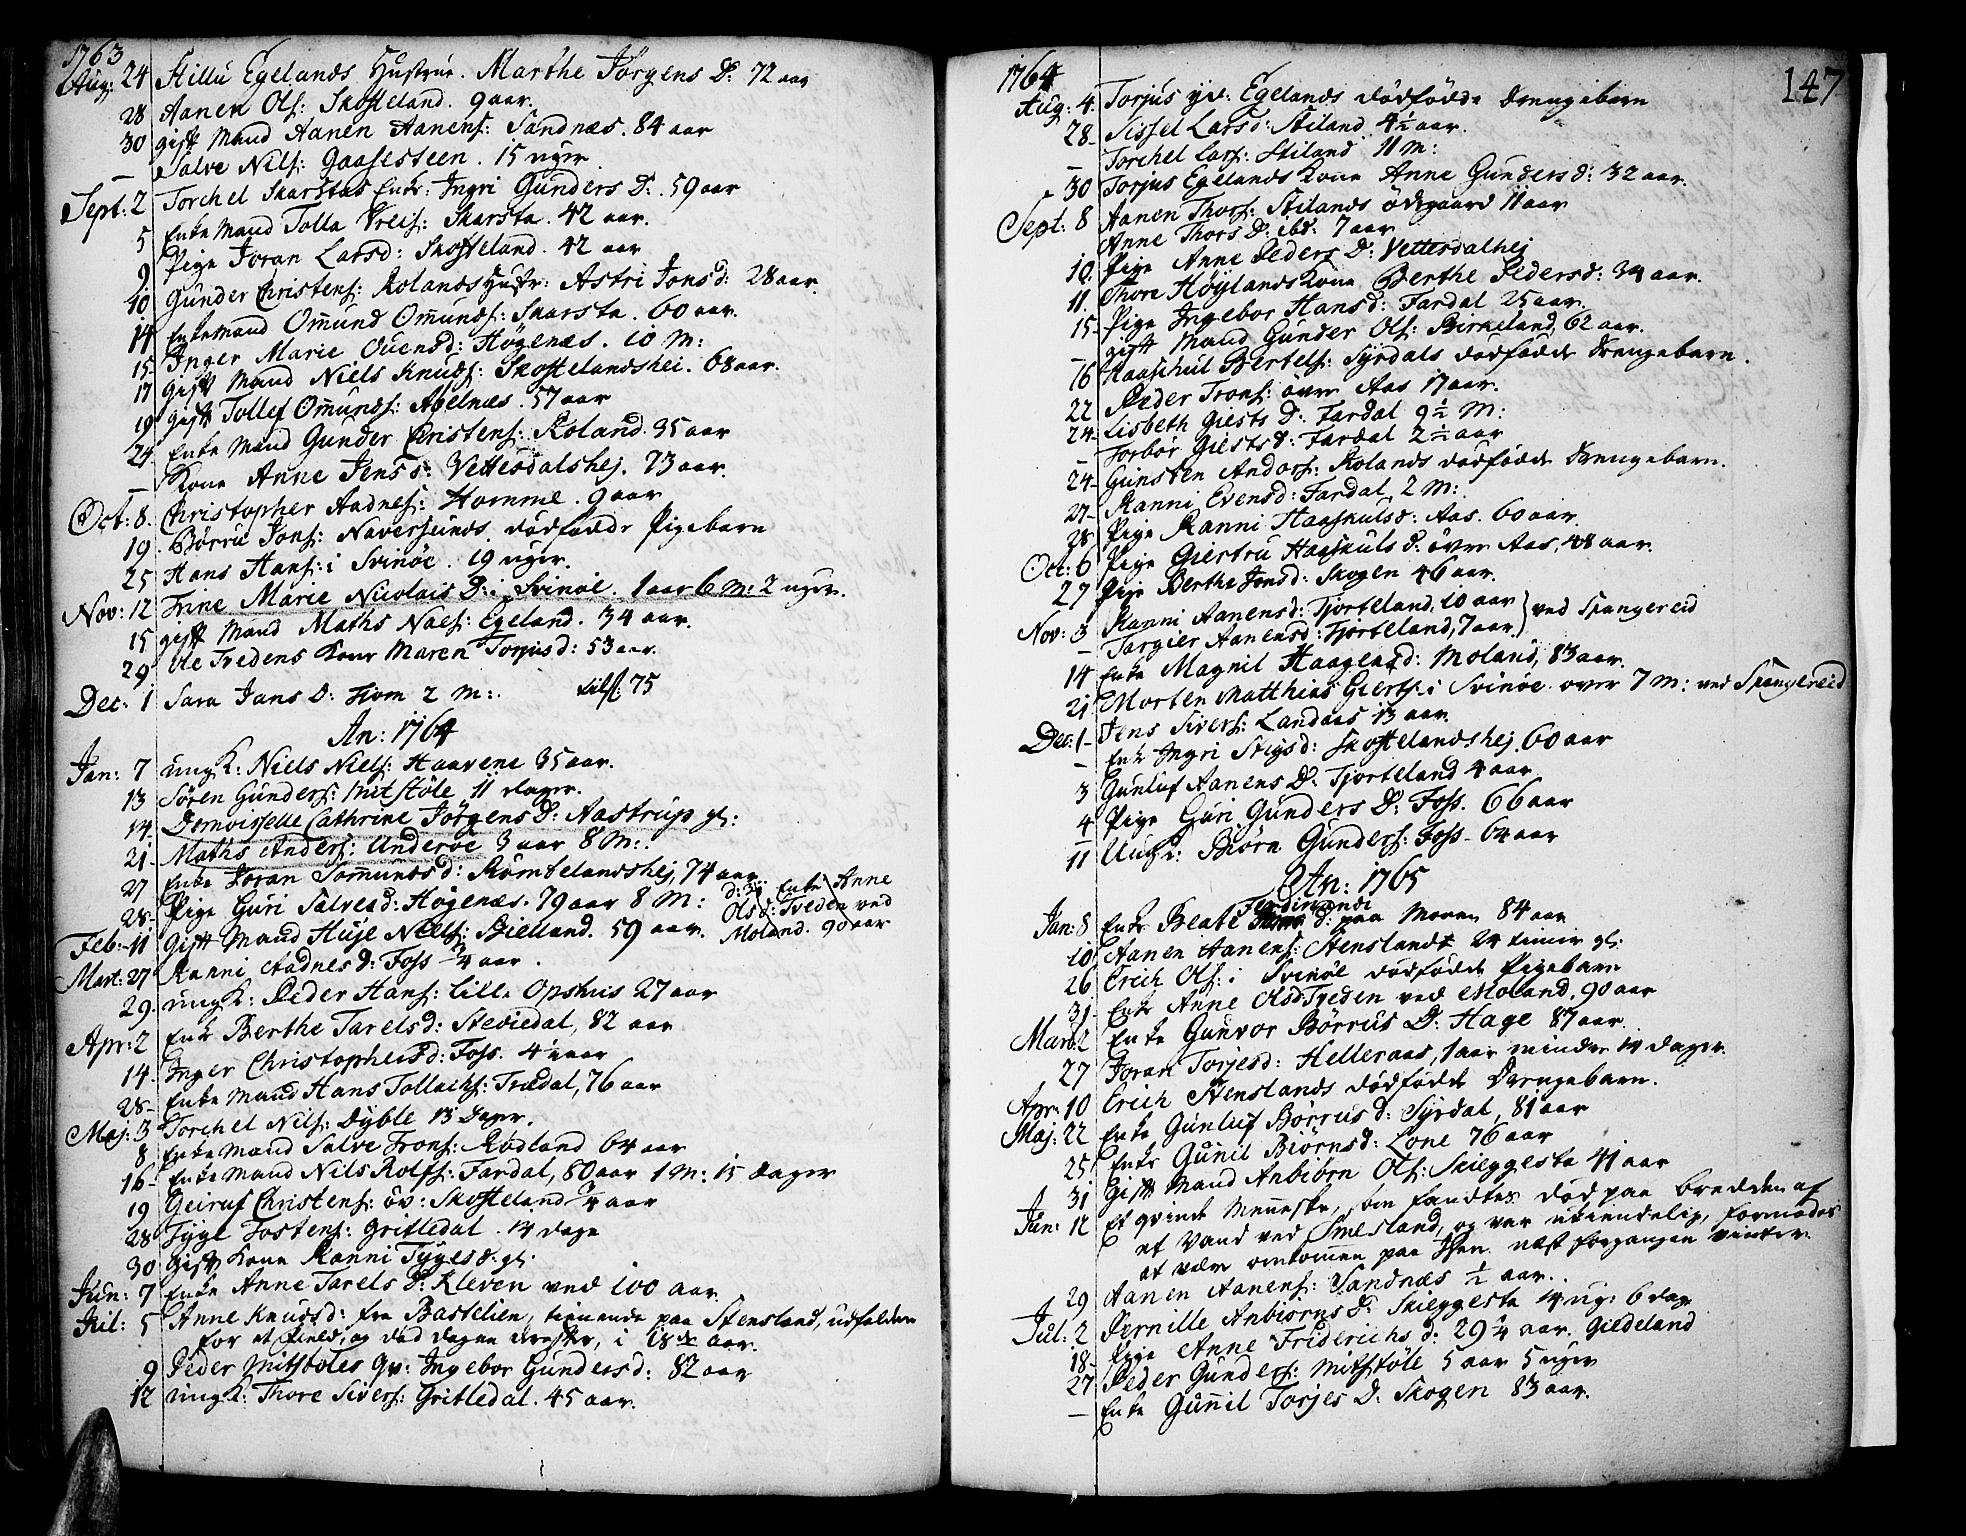 1763
Aug: 24 Stillu Egelands Hustrue. Marthe Jörgens D: 72 aar
28 Aanen Ols: Skofteland. 9 aar.
30 gift Mand Aanen Aanens: Sandnæs. 84 aar
— Salve Nils: Gaasesteen. 15 uger
Sept: 2 Torchel Skarstas Enke: Ingri Gunders D: 59 aar
5 Enke Mand Tolla Skarsta. 42 aar.
9 Pige Joran Larsd: Skofteland. 42 aar
10 Gunder Christens: Rolands Hustr: Astri Jonsd: 28 aar.
14 Enkemand Omund Omunds: Skarsta. 60 aar.
15 Inger Marie Ouensd: Högenæs. 10 M:
17 gift Mand Niels Knuds: Skoftelandshei. 68 aar.
19 gift Tollef Omunds: Abelnæs. 57 aar
24 Enke Mand Gunder Christens: Roland. 35 aar
— Kone Anne Jens D: Vettesdalshej. 73 aar.
Oct: 8. Christopher Aadnes: Homme. 9 aar
19. Börru Jons: Naversunds dödfödde Pigebarn
25 Hans Hans: i Svinöe. 19 uger.
Nov: 12 Trine Marie Nicolais D: i Svinöe. 1 aar 6 M: 2 uger.
15 gift Mand Maths Naes: Egeland. 34 aar.
29 Ole Tvedens Kone Maren Torjusd: 53 aar.
Dec: 1 Sara Jans D: Hom 2 M: 75
An: 1764
Jan: 7 ungK: Niels Niels: Haavene 35 aar.
13 Sören Gunders: Mitstöle 11 dager.
14. Demoiselle Cathrine Jörgens D: Aastrup gl:
21. Maths Anders: Underöe 3 aar 8 M:
27 Enke Joran Tomundsd: Römtelandshej, 74 aar
28 Pige Guri Salvesd: Högenæs. 79 aar 8 M: Enke Anne
Olsd: Tveden ved
Moland. 90 aar
Feb: 11 Gift Mand Huje Niels: Bielland. 59 aar.
Mart: 27 Ranni Aadnes D: Foss ¼ aar.
29. ungK: Peder Hans: Lille Opshus 27 aar
Apr: 2 Enke Berthe Tarelsd: Steviedal, 82 aar
14. Inger Christophersd: Foss. 4½ aar
28 Enke Mand Hans Tollachs: Trædal, 76 aar
Maj: 3 Torchel Nils: Dyble 13 Dager.
8 Enke Mand Salve Trons: Rödland 64 aar
16 Enke Mand Nils Rolfs: Fardal, 80 aar 1 M: 15 dager
19 Geiruf Christens: öv: Skofteland ¾ aar
28 Tyge Tostens: Gritledal. 14 dage
30 Gift Kone Ranni Tyges D. gl:
Jun: 7 Enke Anne Tarels D: Kleven ved 100 aar.
Jul: 5 Anne Knudsd: fra Bastelien, tienende paa Stensland, udfalden
for et Field, og død dagen derefter, i 18de aar.
9 Peder Mitstöles Qv: Ingebor Gundersd: 82 aar
12 ungK: Thore Sivers: Gritledal. 45 aar.
1764 147
Aug: 4 Torjus Egelands dödfödde drengebarn
28 Sissel Larsd: Stiland 4½ aar.
— Torchel Lars: Stiland 11 M:
30 Torjus Egelands Kone Anne Gundersd: 32 aar.
Sept: 8 Aanen Thors: Stilands ödegaard 11 aar
Anne Thors D: ibd: 7 aar
10. Pige Anne Peders D: Vettesdalhej
11. Thore Höylands Kone Berthe Pedersd: 34 aar.
15 Pige Ingebor Hansd: Fardal 25 aar.
— gift Mand Gunder Ols: Birkeland, 62 aar.
16 Haaschul Bertels: Syrdals dödfödde drengebarn.
22 Peder Trons: övre Aas 17 aar.
24 Lisbeth Giests D: Fardal 9½ M:
— Torbör Giestsd: Fardal 2½ aar
24 Gunsten Andors: Rolands dödfödde drengebarn.
27 Ranni Evensd: Fardal, 2 M:
28 Pige Ranni Haaskulsd: Aas. 60 aar.
Oct: 6 Pige Giertru Haaskuls D: övre Aas, 48 aar.
27 Pige Berthe Jonsd: Skogen 46 aar.
Nov: 3 Ranni Aanensd: Tjorteland, 10 aar } ved Spangereid
— Targier Aanensd: Tjorteland, 7 aar
14 Enke Magnil Haagensd: Moland, 83 aar.
21 Morten Matthias Gierts: i Svinöe over 7 M: ved Spangereid
Dec: 1 Jens Sivers: Landaas 13 aar.
— Enke Ingri Stigsd: Skoftelandshej 60 aar
3 Gunluf Aanens D: Tjorteland 4 aar
4 Pige Guri Gunders D: Foss. 66 aar
11 UngK: Biörn Gunders: Foss. 64 aar
An: 1765
Ferdinandi
Jan: 8 Enke Beate D: paa Moren 84 aar
10 Aanen Aanens: Stensland 24 timer gl:
26 Erich Ols: i Svinöe dödfödde Pigebarn
31 Enke Anne Olsd Tveden ved Moland, 90 aar
Mart: 2 Enke Gunvor Börrus D: Hage 87 aar.
27 Joran Torjesd: Helleraas, 1 aar mindre 14 dager.
Apr: 10 Erich Stenslands dödfödde Drengebarn.
Maj: 22 Enke Gunluf Börrusd: Syrdal, 81 aar
25 Enke Gunil Biörnsd: Lone 76 aar
31 Gift Mand Anbiörn Ols: Skieggesta 41 aar
Jun: 12 Et qvinde Menneske, som fandtes död paa bredden af
et Vand ved Smesland, og var ukiendelig, formodes
at være omkommen paa Isen næst forgangen vinter.
29 Aanen Aanens: Sandnæs ½ aar.
Jul: 2 Pernille Anbiörns D: Skieggesta 14 ug: 6 dag
18 Pige Anne Friderichs D: 29¼ aar. Gildeland
27 Peder Gunders: Mitstöle 5 aar 5 uger
— Enke Gunil Torjes D: Skogen 83 aar.